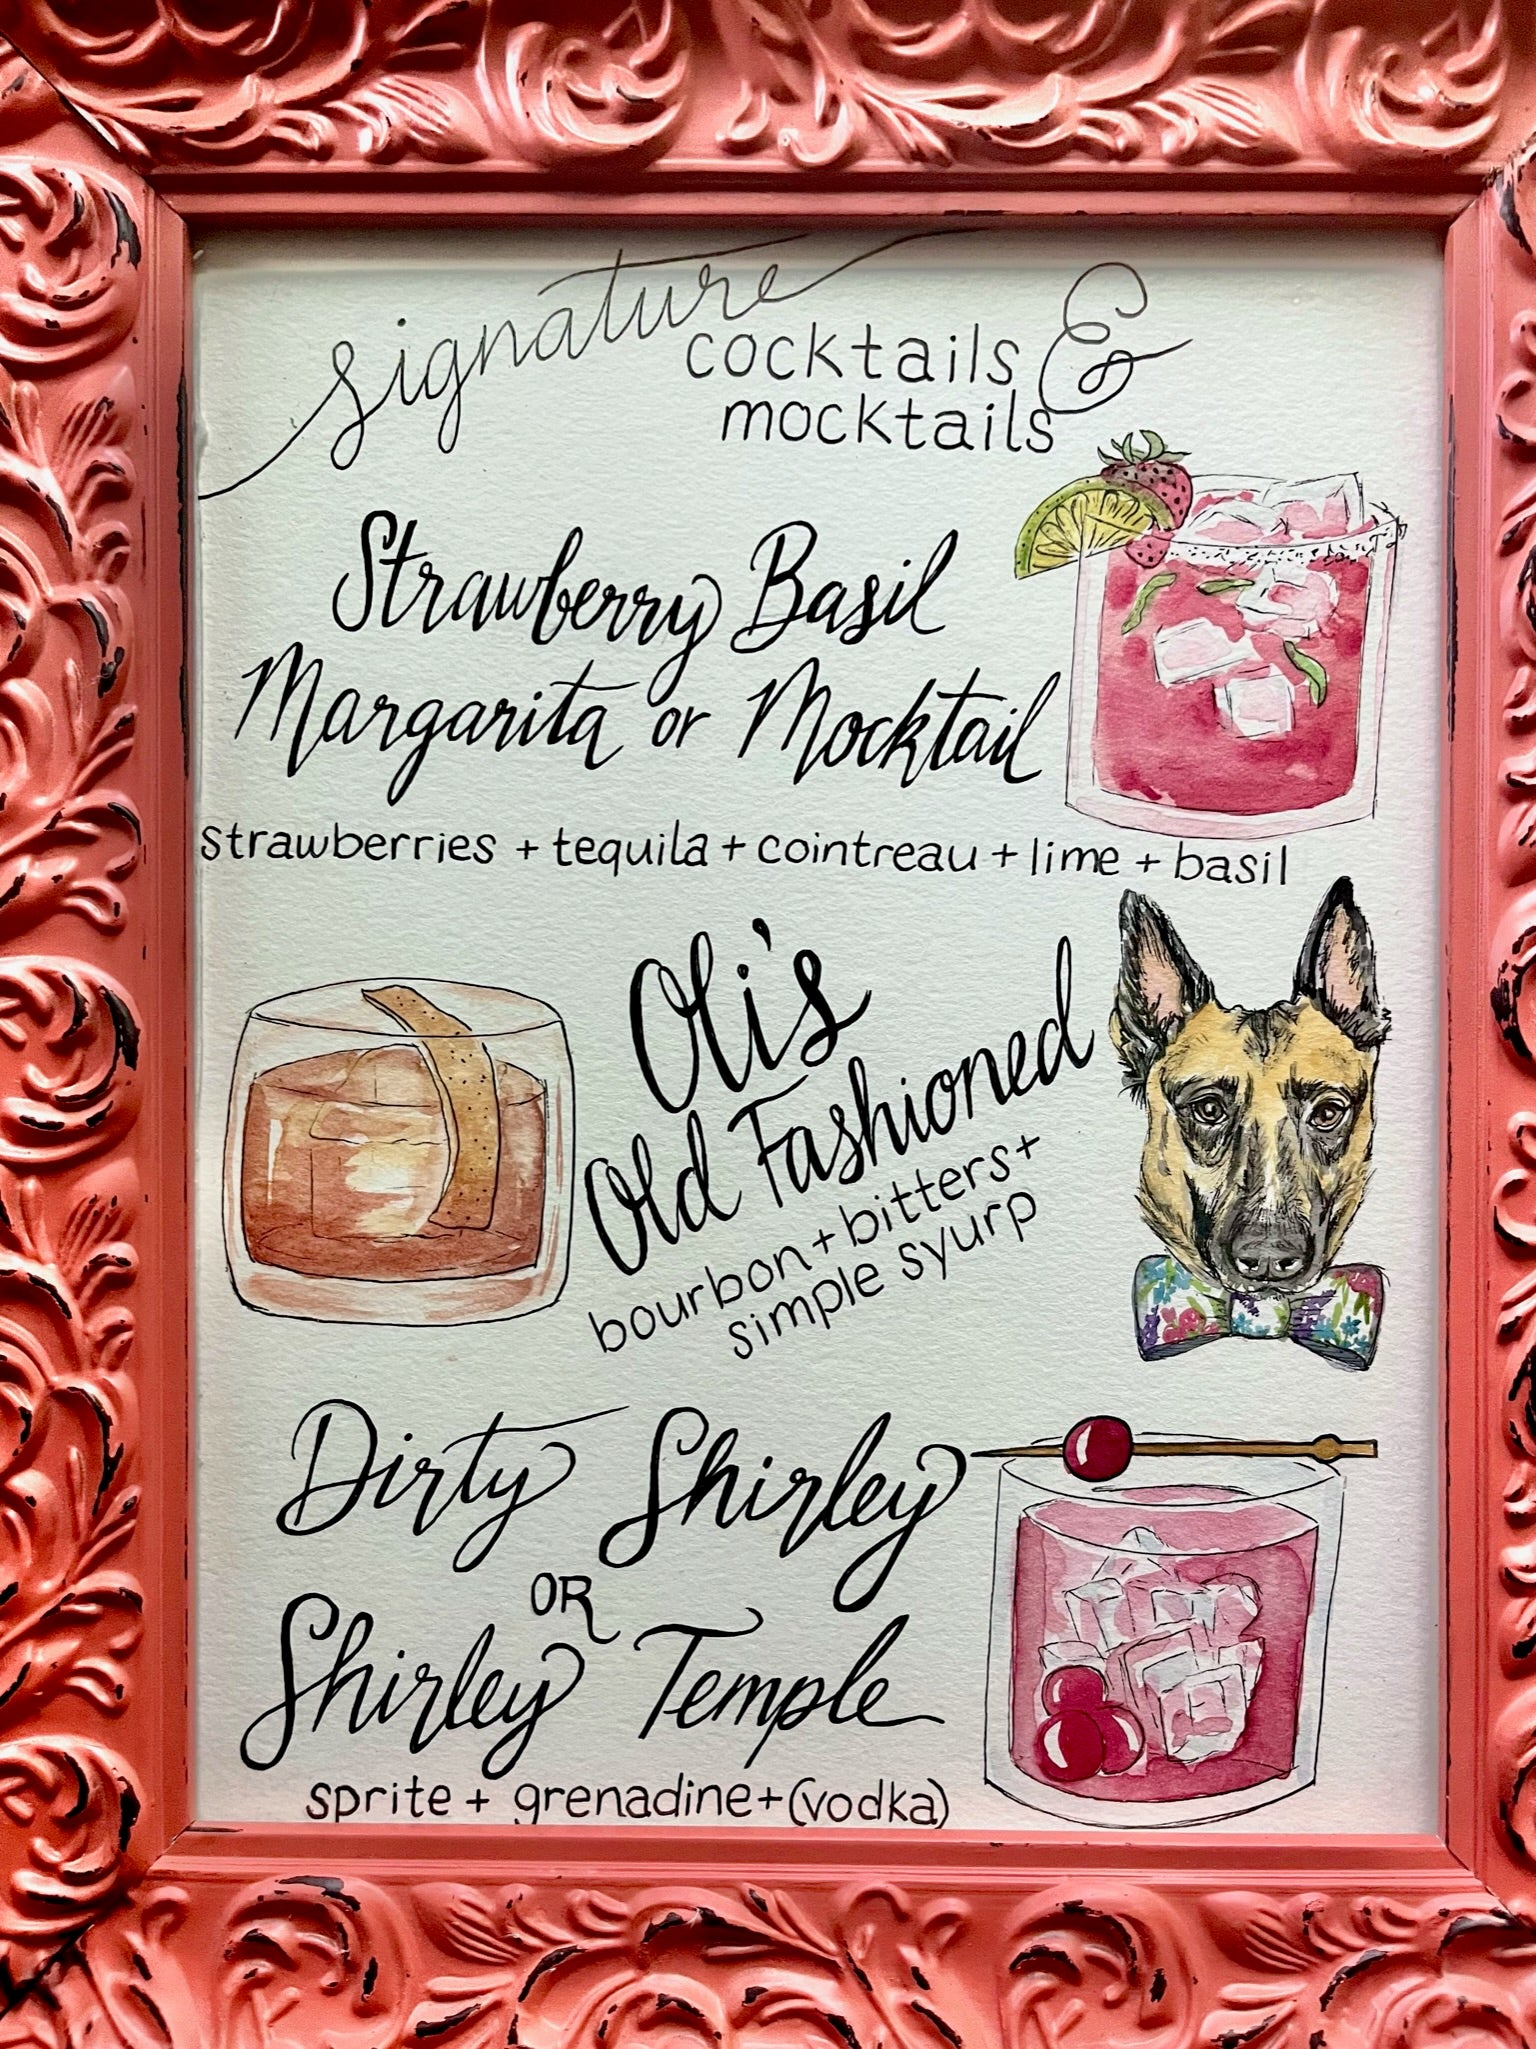 signature
cocktails &
mocktails
Strawberry Basil
Margarita or Mocktail
strawberries + tequila + cointreau + lime + basil
Oli's
Old Fashioned
bourbon + bitters +
simple syurp
Dirty Shirley
OR
Shirley Temple
sprite + grenadine + (vodka)